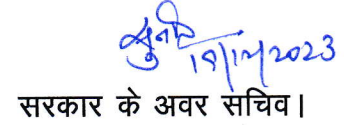 18/12/2023
सरकार के अवर सचिव।